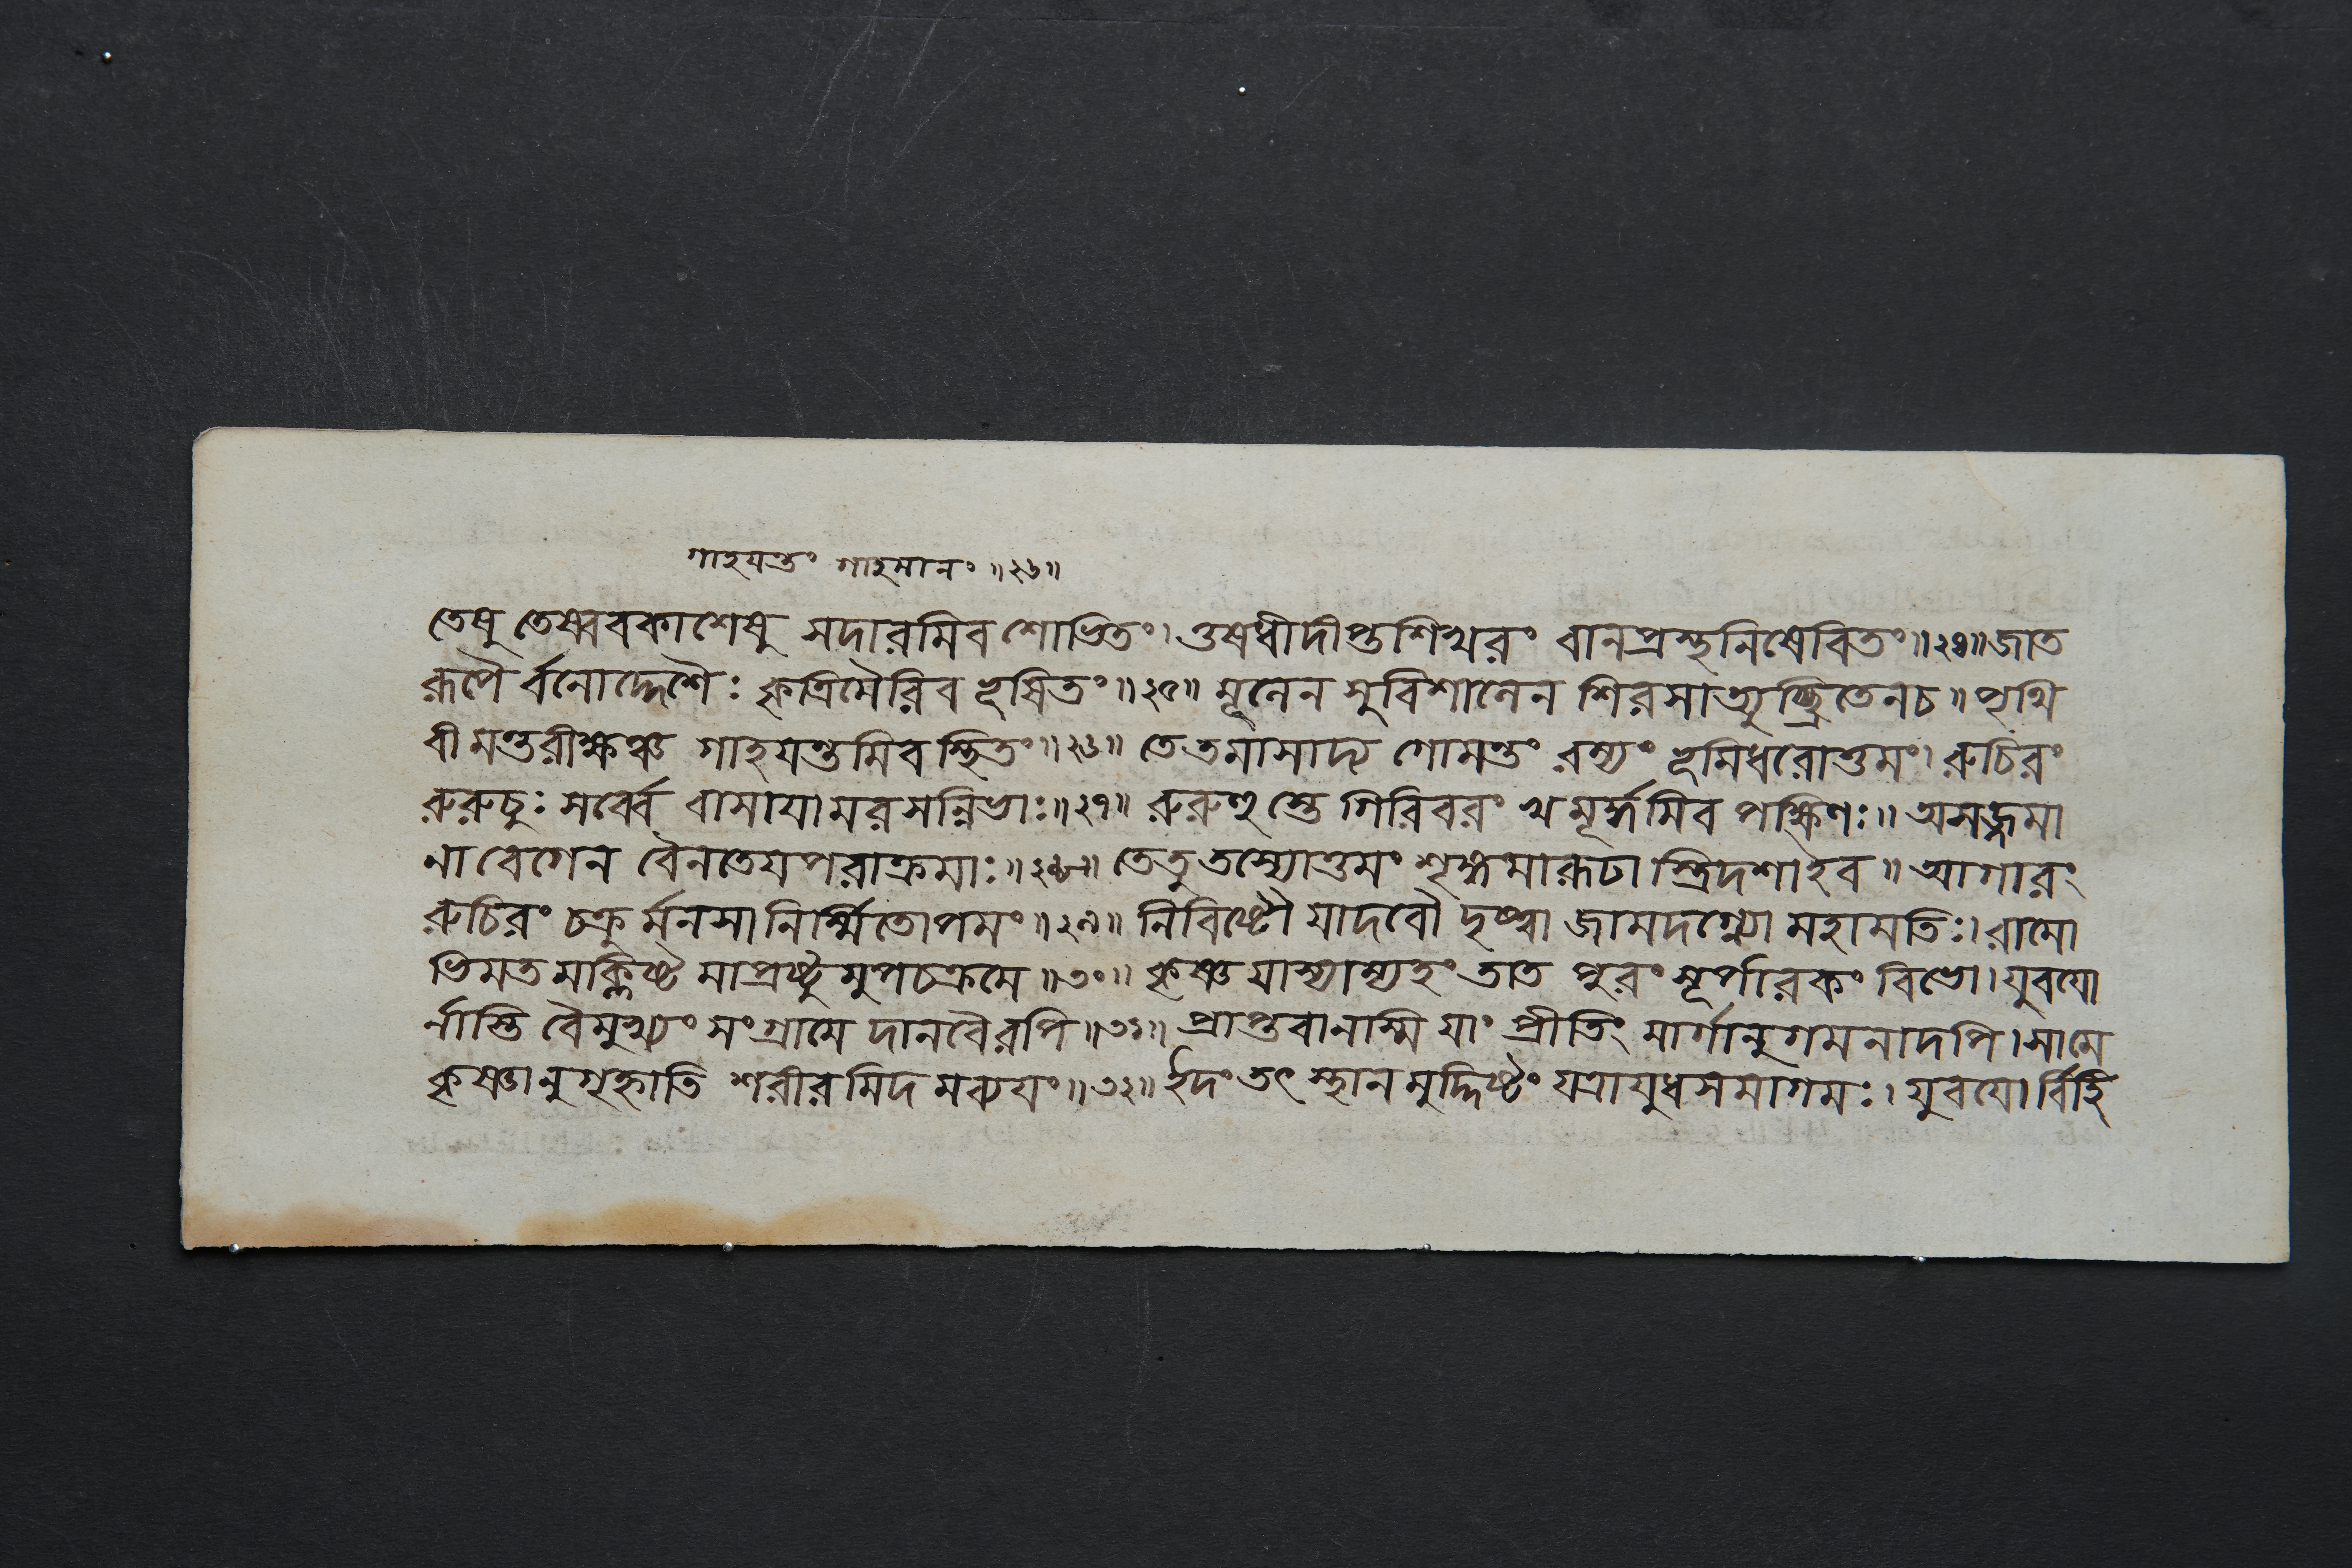 গাহযন্তং গাহমানং ॥২৬॥
তেষু তেষ্ববকাশেষু সদারমিব শোভিতং। ওষধীদীপ্তশিখরং বানপ্রস্থনিষেবিতং॥২৪॥ জাত
রূপৈ র্বনোদ্দেশৈঃ কৃত্রিমৈরিব ভূষিতং॥২৫॥ মূলেন সুবিশালেন শিরসাত্যুচ্ছ্রিতেনচ॥ পৃথি
বীমন্তরীক্ষঞ্চ গাহযন্তমিব স্থিতং॥২৬॥ তে তমাসাদ্য গোমন্তং রম্যং ভূমিধরোত্তমং। রুচিরং
রুরুচুঃ সর্ব্বে বাসাযামরসন্নিভাঃ॥২৭॥ রুরুহু স্তে গিরিবরং খমূর্দ্ধমিব পক্ষিণঃ॥ অসজ্জমা
না বেগেন বৈনতেযপরাক্রমাঃ॥২৮॥ তেতু তস্যোত্তমং শৃঙ্গমারূঢা স্ত্রিদশাইব॥ আগারং
রুচিরং চক্রু র্মনসা নির্ম্মিতোপমং॥২৯॥ নিবিষ্টৌ যাদবৌ দৃষ্ট্বা জামদগ্ন্যো মহামতিঃ। রামো
ভিমত মক্লিষ্ট মাপ্রষ্টু মুপচক্রমে॥৩০॥ কৃষ্ণ যাস্যাম্যহং তাত পুরং সূর্পারকং বিভো। যুবযো
র্নাস্তি বৈমুখ্যং সংগ্রামে দানবৈরপি॥৩১॥ প্রাপ্তবানস্মি যাং প্রীতিং মার্গানুগমনাদপি। সামে
কৃষ্ণানুগৃহ্ণাতি শরীরমিদ মব্যযং॥৩২॥ ইদং তৎ স্থান মুদ্দিষ্টং যত্রাযুধসমাগমঃ। যুবযো র্বিহি